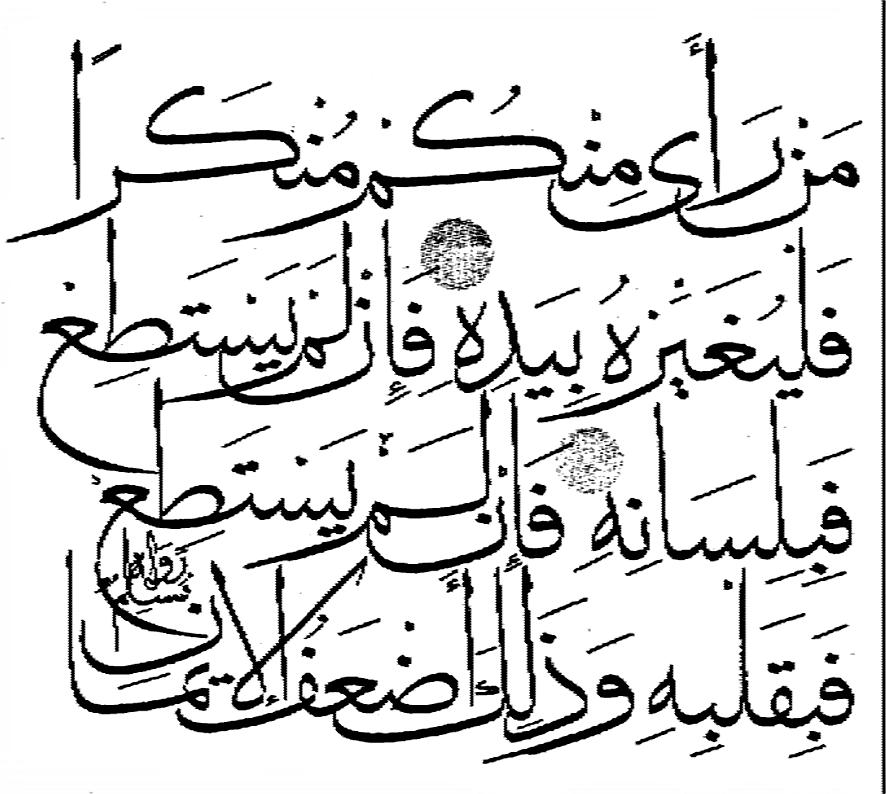 مَنْ رَأَى مِنْكُمْ مُنْكَرًا
فَلْيُغَيِّرْهُ بِيَدِهِ فَإِنْ لَمْ يَسْتَطِعْ
فَبِلِسَانِهِ فَإِنْ لَمْ يَسْتَطِعْ
فَبِقَلْبِهِ وَذَلِكَ أَضْعَفُ الإِيمَانِ
رَوَاهُ مُسْلِم